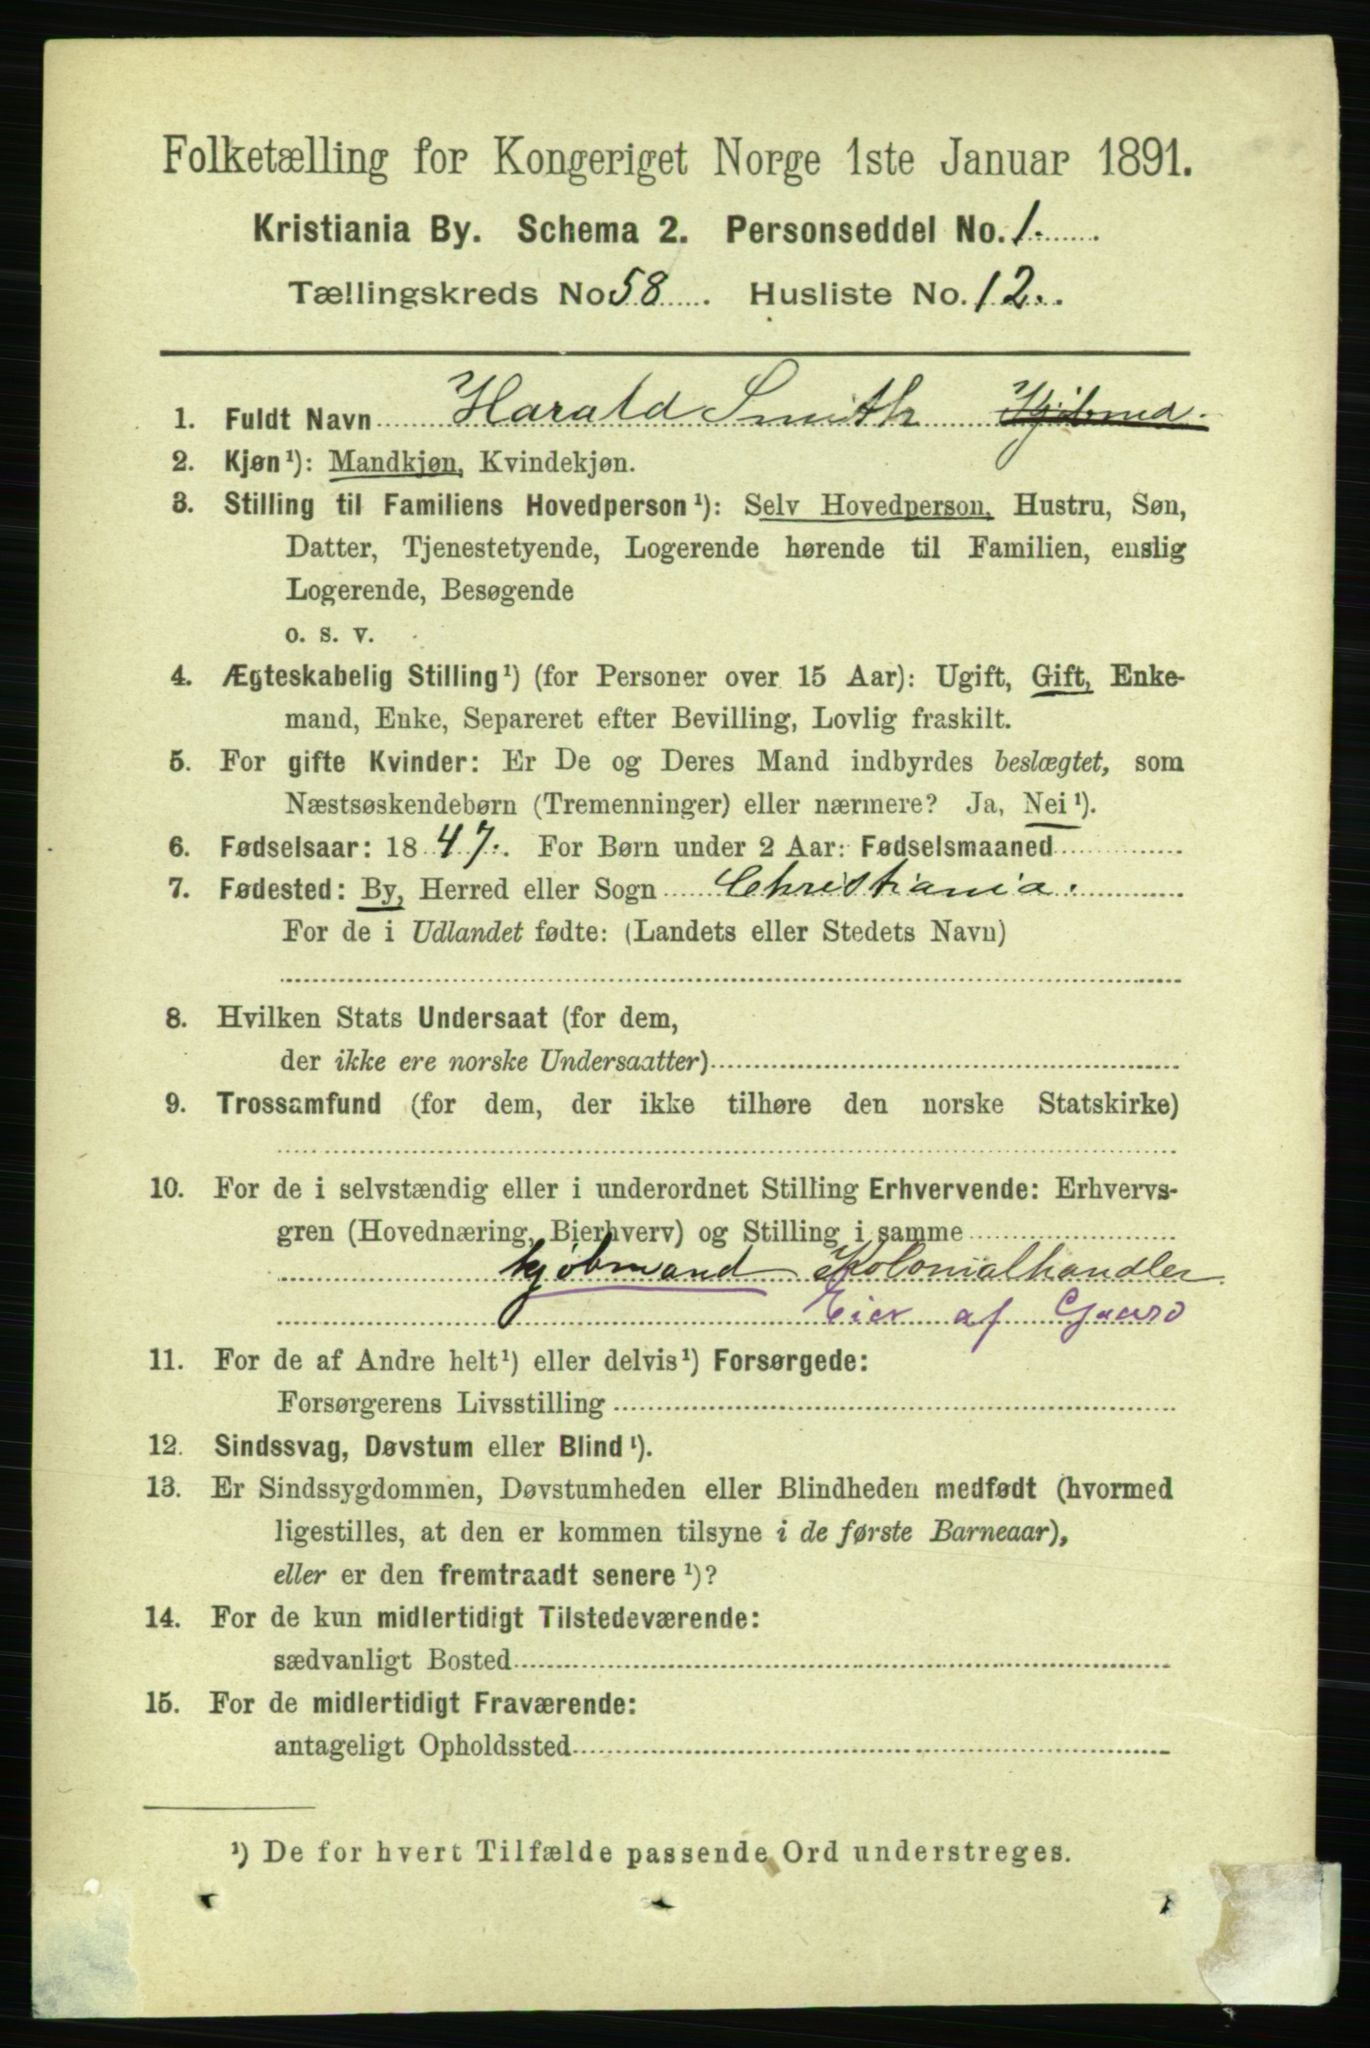 Folketælling for Kongeriget Norge 1ste Januar 1891.
Kristiania By. Schema 2. Personseddel No. 1.
Tællingskreds No 58. Husliste No. 12.
1. Fuldt Navn Harald Smith Kjøbmd.
2. Kjøn¹): Mandkjøn, Kvindekjøn.
3. Stilling til Familiens Hovedperson¹): Selv Hovedperson, Hustru, Søn,
Datter, Tjenestetyende, Logerende hørende til Familien, enslig
Logerende, Besøgende
o. s. v.
4. Ægteskabelig Stilling¹) (for Personer over 15 Aar): Ugift, Gift, Enke-
mand, Enke, Separeret efter Bevilling, Lovlig fraskilt.
5. For gifte Kvinder: Er De og Deres Mand indbyrdes beslægtet, som
Næstsøskendebørn (Tremenninger) eller nærmere? Ja, Nei¹).
6. Fødselsaar: 1847. For Børn under 2 Aar: Fødselsmaaned
7. Fødested: By, Herred eller Sogn Christiania.
For de i Udlandet fødte: (Landets eller Stedets Navn)
8. Hvilken Stats Undersaat (for dem,
der ikke ere norske Undersaatter)
9. Trossamfund (for dem, der ikke tilhøre den norske Statskirke)
10. For de i selvstændig eller i underordnet Stilling Erhvervende: Erhvervs-
gren (Hovednæring, Bierhverv) og Stilling i samme
kjøbmand Kolonialhandler
Eier af Gaard
11. For de af Andre helt¹) eller delvis¹) Forsørgede:
Forsørgerens Livsstilling
12. Sindssvag, Døvstum eller Blind¹).
13. Er Sindssygdommen, Døvstumheden eller Blindheden medfødt (hvormed
ligestilles, at den er kommen tilsyne i de første Barneaar),
eller er den fremtraadt senere¹)?
14. For de kun midlertidigt Tilstedeværende:
sædvanligt Bosted
15. For de midlertidigt Fraværende:
antageligt Opholdssted
¹) De for hvert Tilfælde passende Ord understreges.